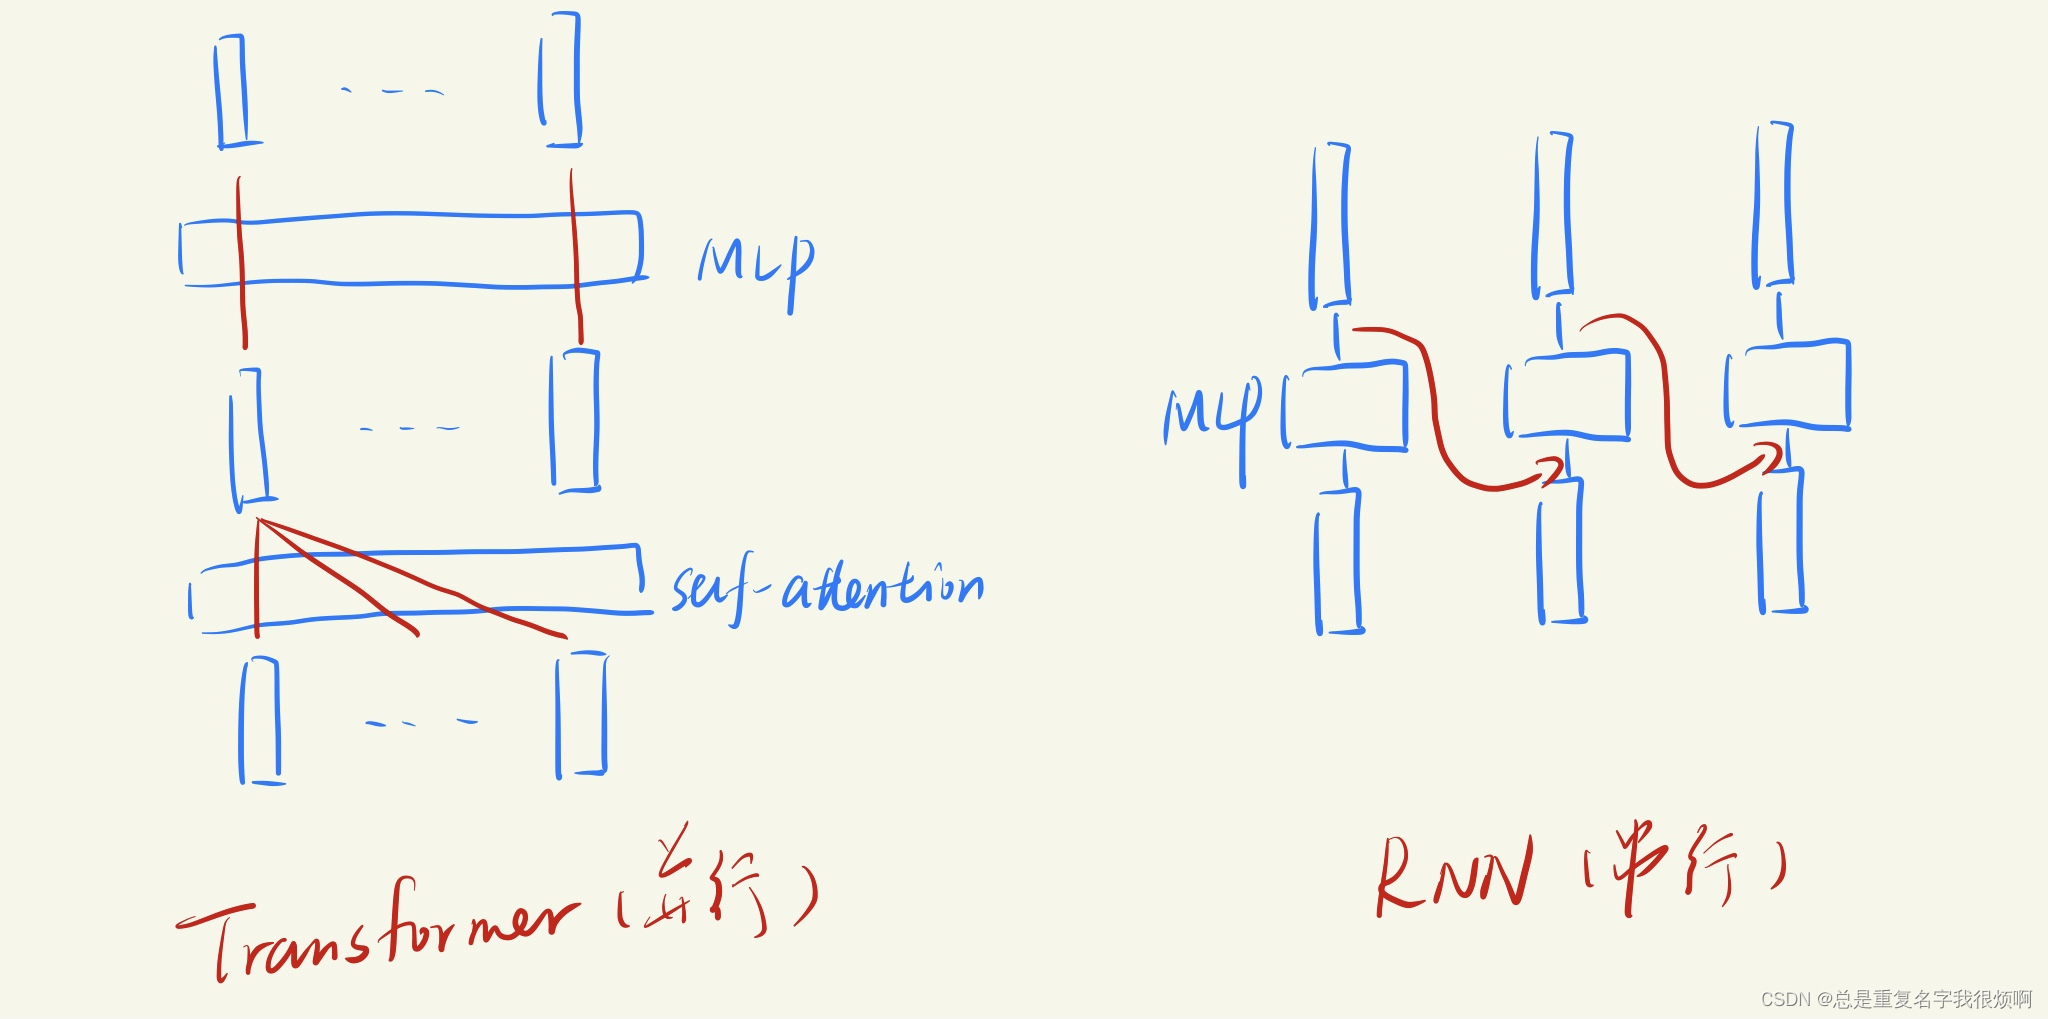 MLP
self-attention
Transformer (并行)
MLP
RNN (串行)
CSDN @总是重复名字我很烦啊